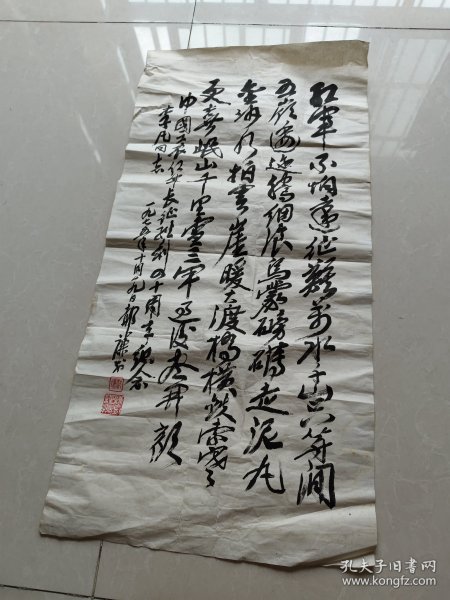 红军不怕远征难万水千山只等闲
五岭逶迤腾细浪乌蒙磅礴走泥丸
金沙水拍云崖暖大渡桥横铁索寒
更喜岷山千里雪三军过后尽开颜
中国工农红军长征胜利四十周年纪念
凡同志
一九七五年十月十九日
孔夫子旧书网
www.kongfz.com